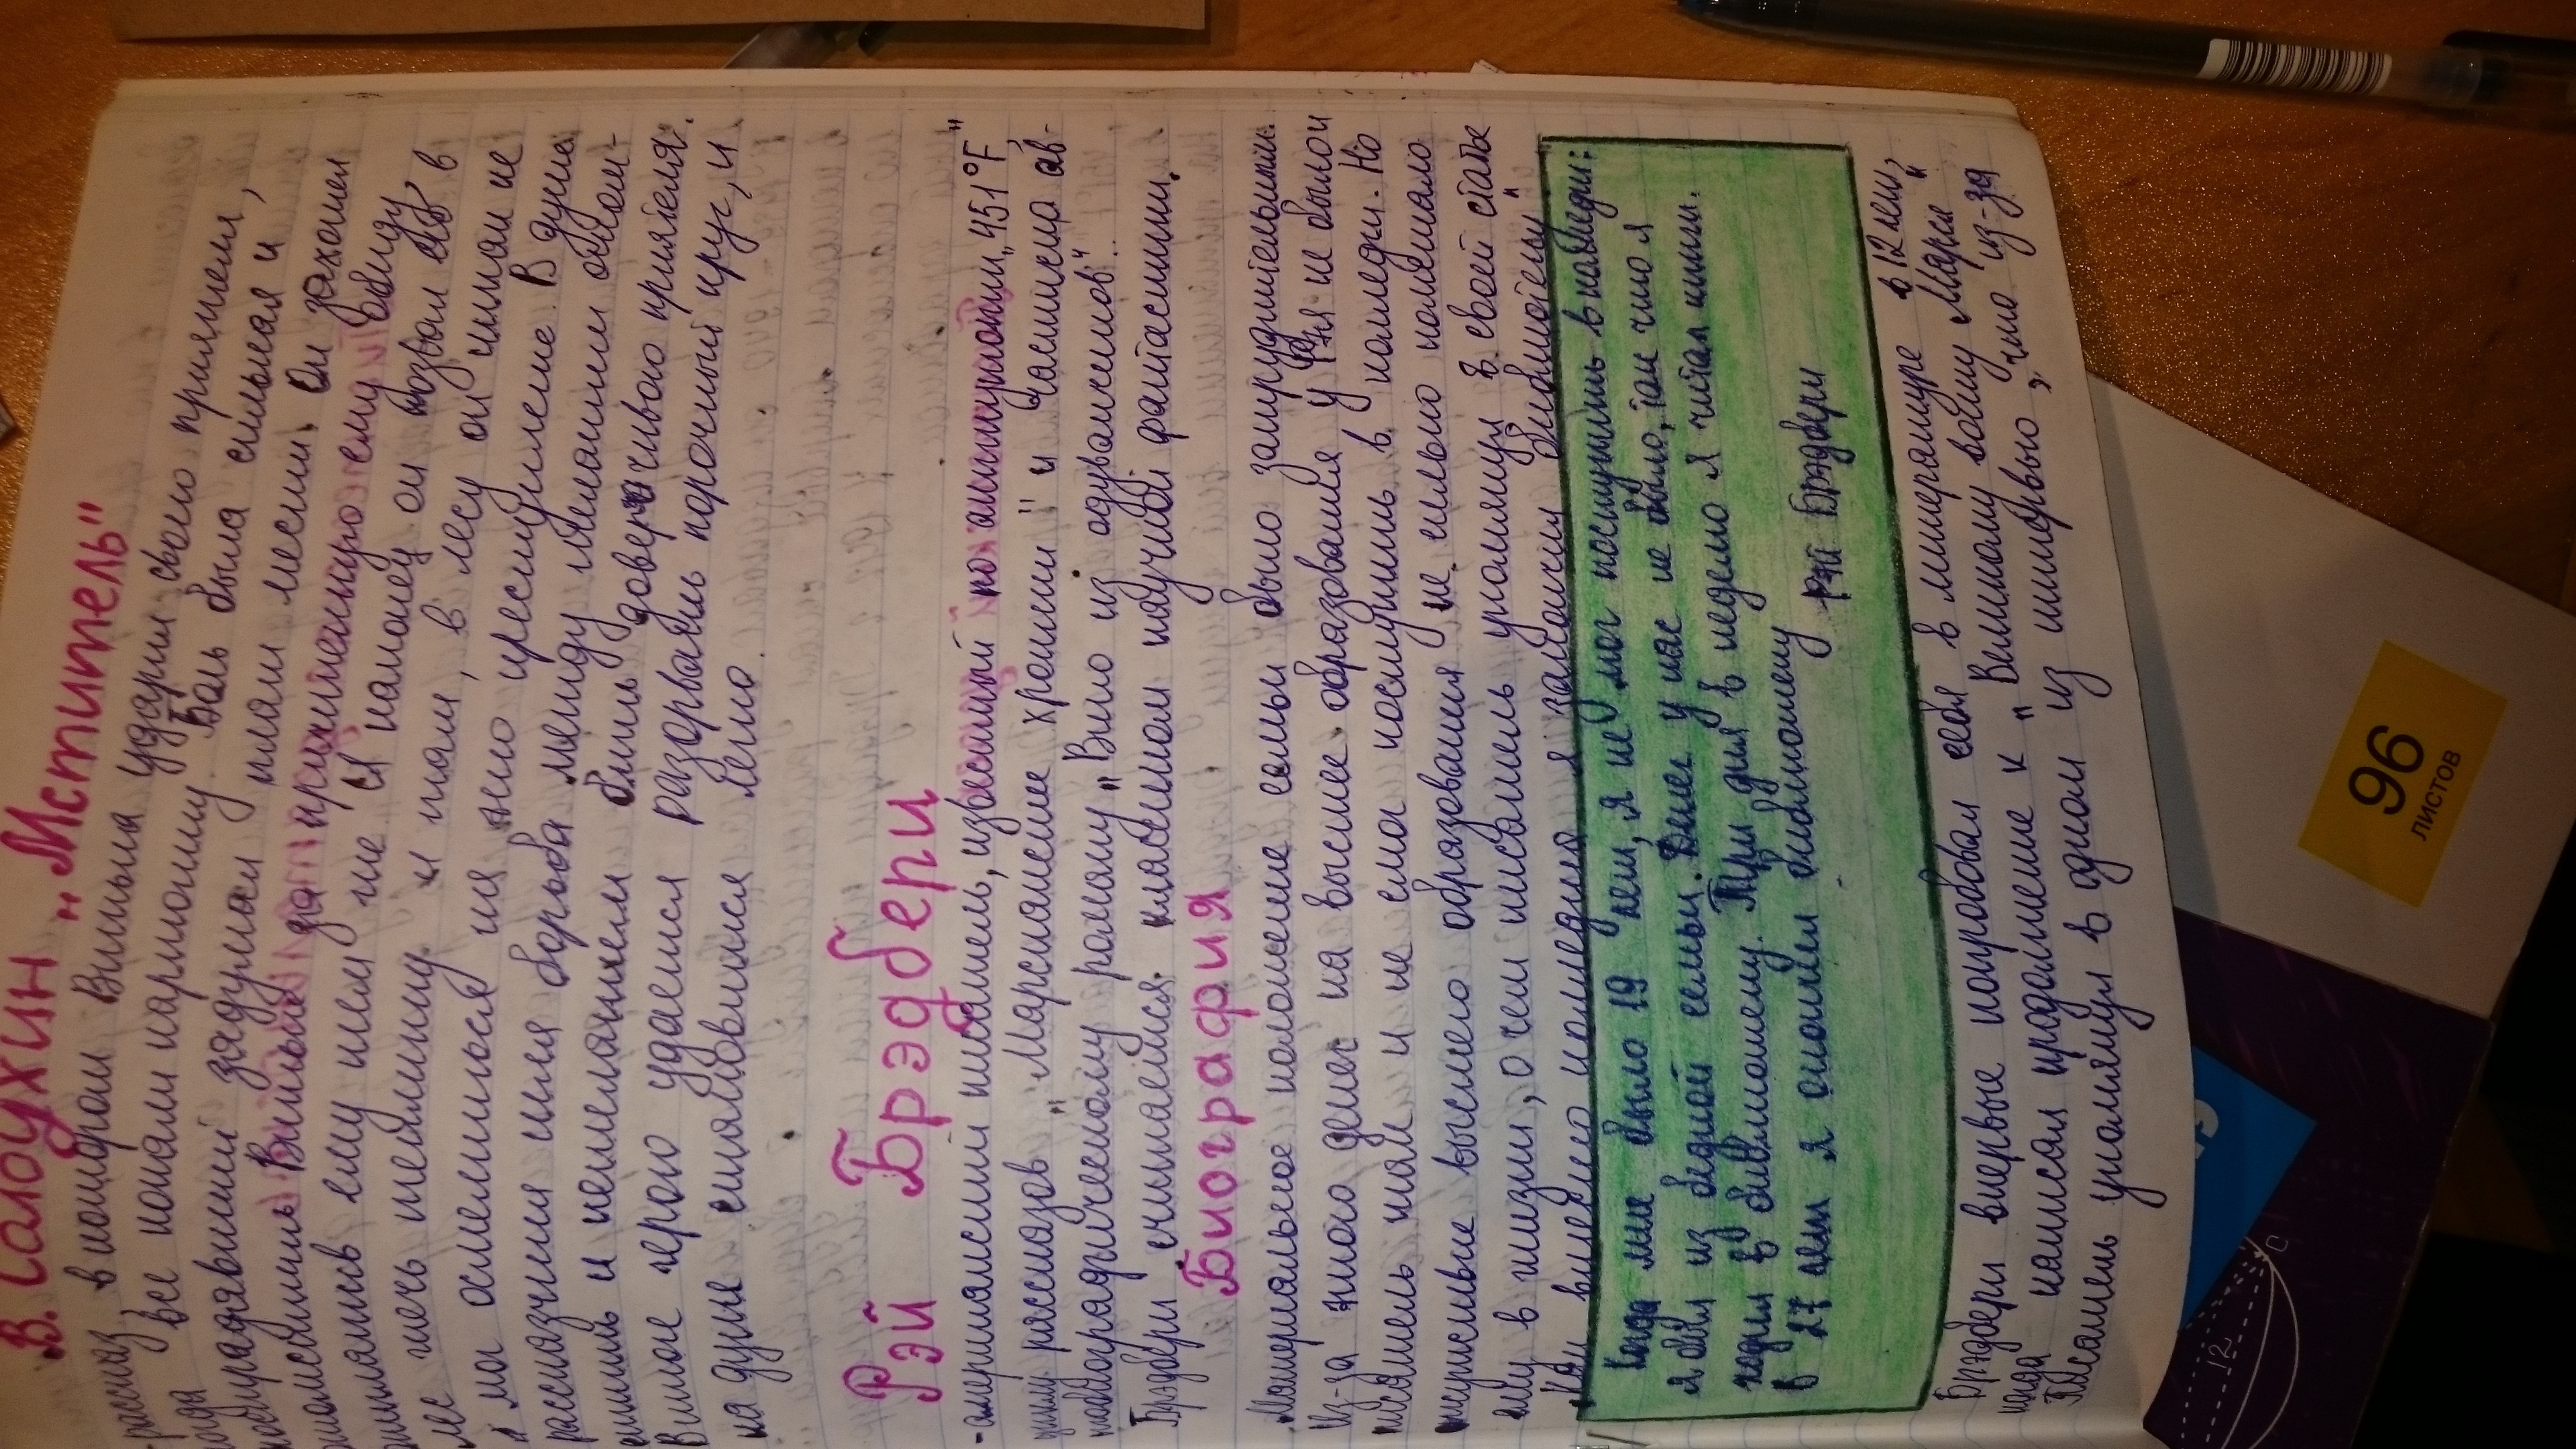 В. Салоухин „Мститель"
-рассказ, в котором Витька ударил своего приятеля,
когда все копали картошку. Боль была сильная и
несправедливый задумал план мести. Он захотел
отомстить Витьке
ему Витьку,
не ся намочей он позвал его в
лес жечь теплинку и там, в лесу он никак не
мог осмелиться на это преступление. В душе
рассказчика шла борьба между желанием отом-
стить и нежеланием бить доверчивого приятеля.
В итоге герою удается разорвать порочный круг, и
на душе становится легко.
Рэй Брэдбери
- американский писатель, известный по антиутопии „451°F"
циклу рассказов „Марсианские хроники" и частично ав-
тобиографическому роману „Вино из одуванчиков".
Брэдбери считается классиком научной фантастики.
Биография
Материальное положение семьи было затруднительным.
Из-за этого денег на высшее образования у Рэя не было и
писатель так и не смог поступить в колледж. Но
отсутствие высшего образования не сильно помешало
ему в жизни, о чем писатель упомянул в своей статье
„Как вместо колледжа я закончил библиотеку"
Когда мне было 19 лет, я не мог поступить в колледж:
я был из бедной семьи. Денег у нас не было, так что я
ходил в библиотеку. Три дня в неделю я читал книги.
В 27 лет я окончил библиотеку
Рэй Брэдбери
Брэдбери впервые попробовал себя в литературе в 12 лет,
когда написал продолжение к „Великому воину Марса"
Писатель упомянул в одном из интервью, что из-за
96
листов
12